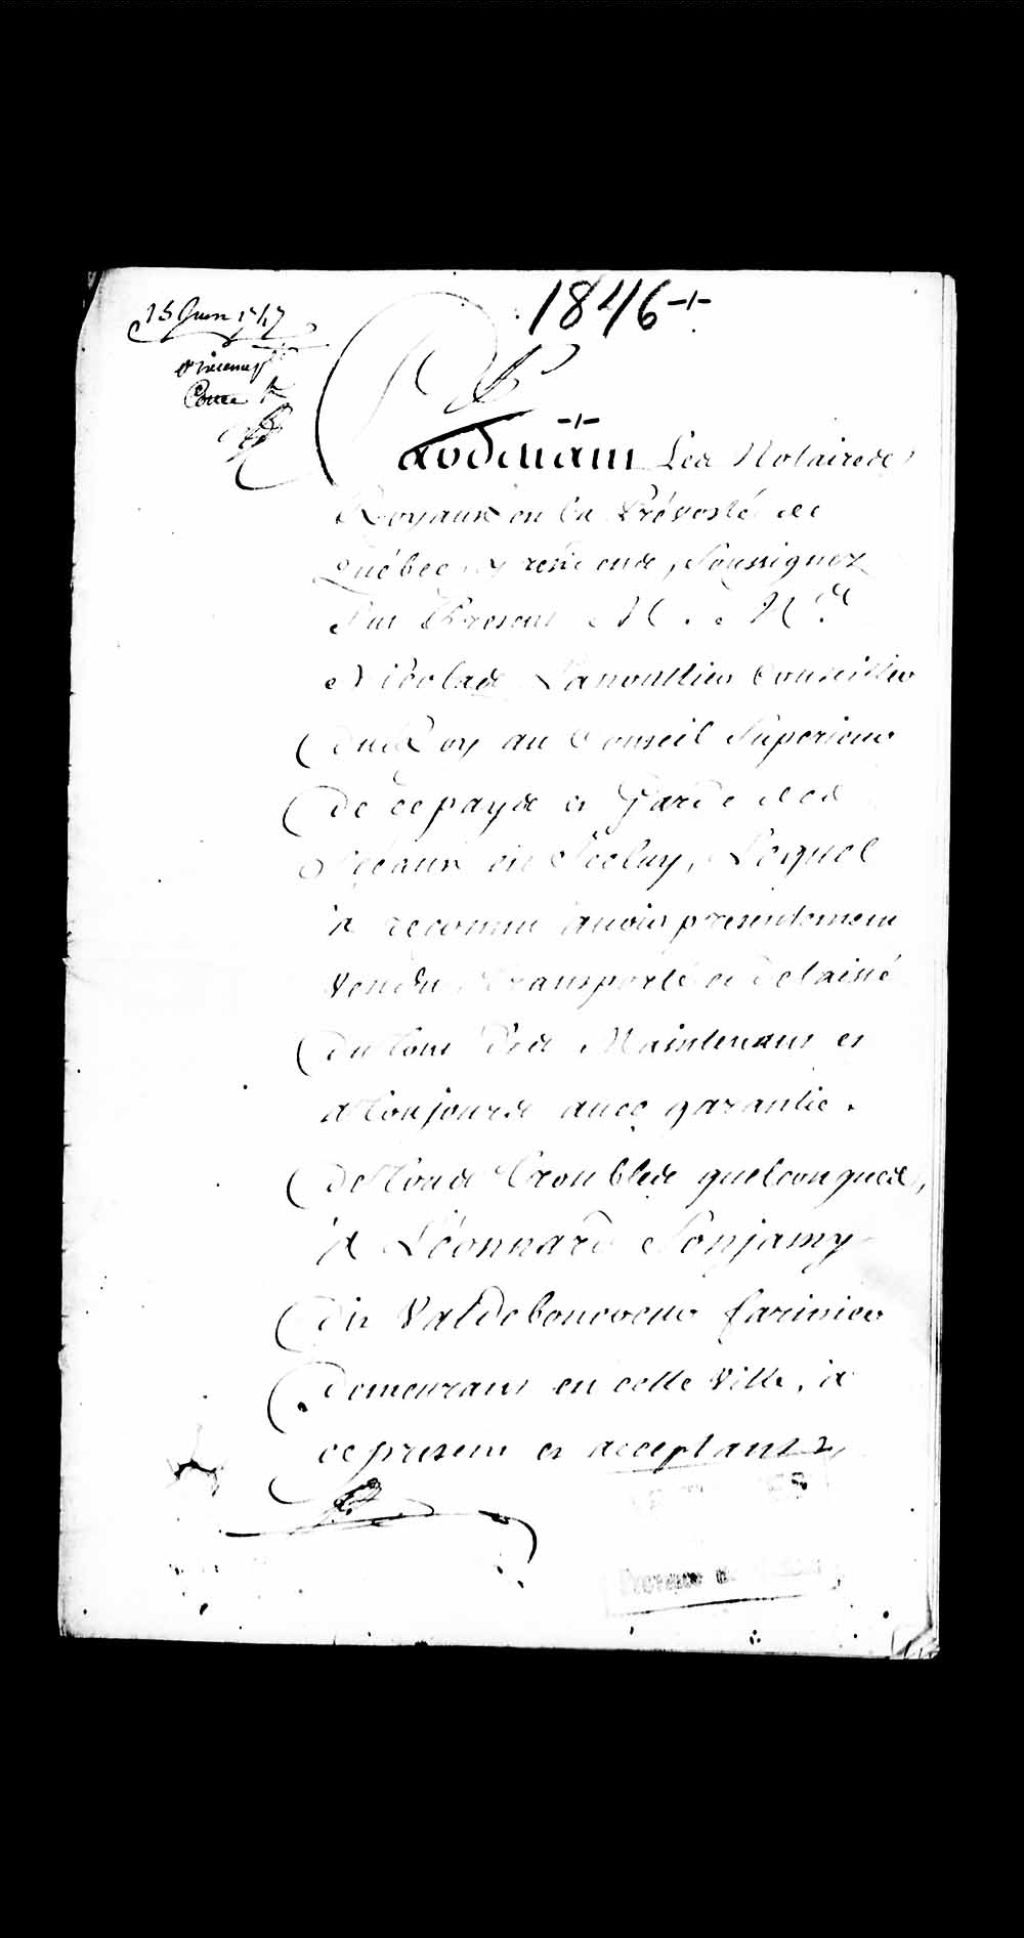 1846
15 Juin 1747
Pardevant Les Notaires
Royaux en la Prévosté de
Québec y residends, Soussignez
Fut Present M. Me
Nicolas Lanoullier Conseiller
du Roy au Conseil Superieur
de ce pays et Garde des
Sceaux en Iceluy, Lequel
à reconnu avoir presentement
Vendu Transporté et delaissé
du tout dès Maintenant et
a Toujours avec garantie
de Tous Troubles quelconques,
à Léonnard Jonjamy
dit Valdeboncoeur farinier
demeurant en cette Ville, à
ce present et acceptant